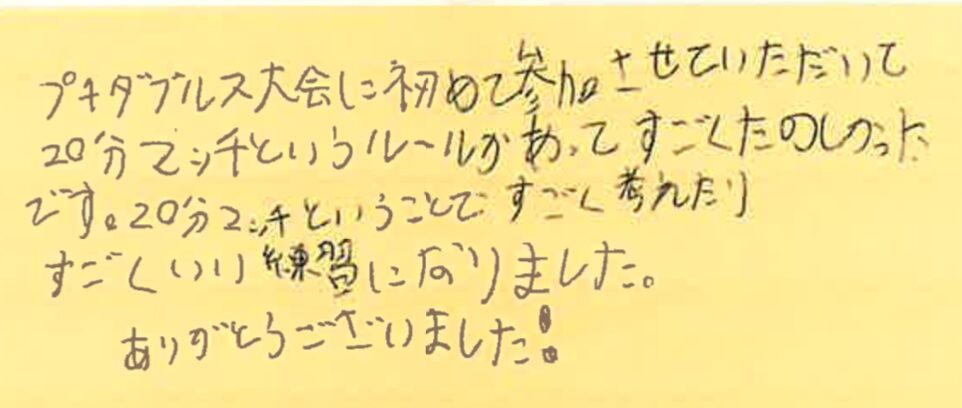 プチダブルス大会に初めて参加させていただいて
20分マッチというルールがあってすごくたのしかった
です。20分マッチということですごく考えたり
すごくいい練習になりました。
ありがとうございました!